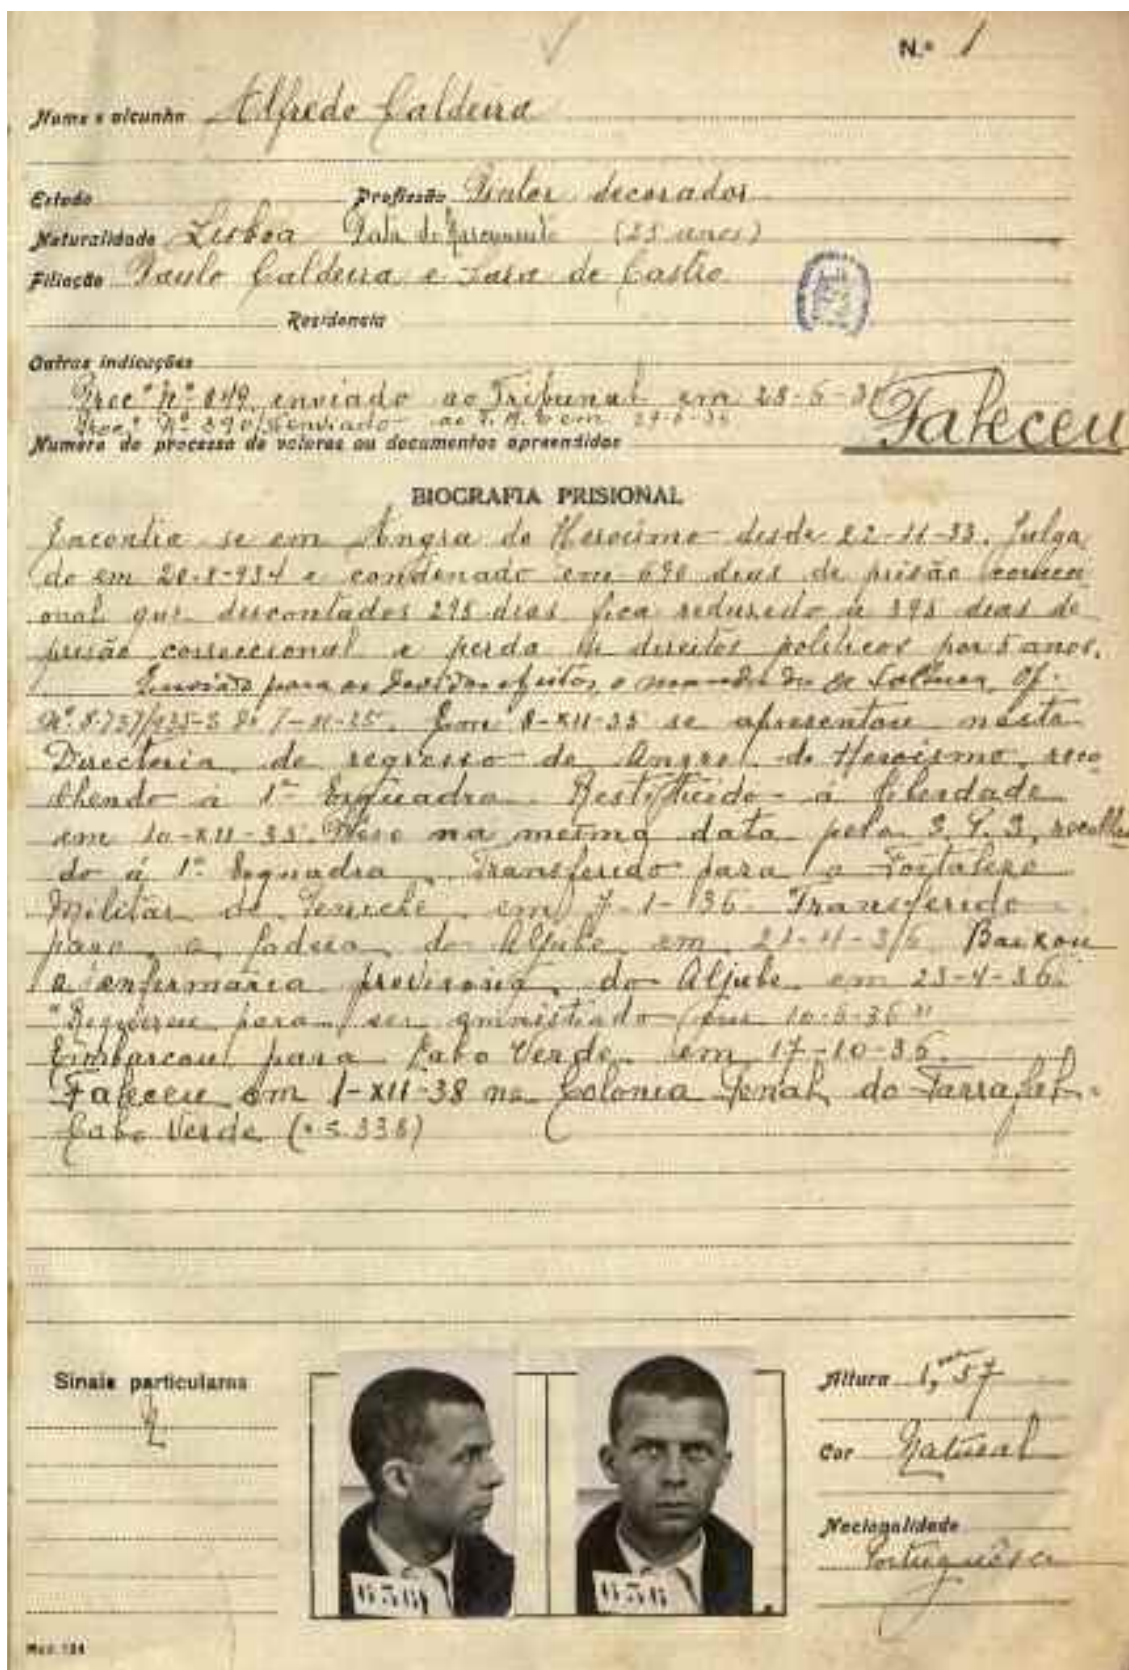 N.º 1
Nome e alcunha Alfredo Caldeira
Estado Profissão Pintor decorador
Naturalidade Lisboa Data de Nascimento (25 anos)
Filiação Paulo Caldeira e Sara de Castro
Residencia
Outras indicações
Proc.º Nº 849 enviado ao Tribunal em 28-5-
Proc.º Nº enviado ao T. M. E em
Faleceu
Numero do processo de valores ou documentos apreendidos
BIOGRAFIA PRISIONAL
Encontra se em Angra do Heroismo desde 22-11-33. Julga
do em 20-8-934 e condenado em 690 dias de prisão correcci
onal que descontados 295 dias fica reduzido a 395 dias de
prisão correccional e perda de direitos politicos por 5 anos.
Enviado para os devidos efeitos o mandado de soltura Of.
Em 8-XII-35 se apresentou nesta
Directoria de regresso de Angra do Heroismo, reco
lhendo á 1ª Esquadra. Restituido á liberdade
em 10-XII-35. Preso na mesma data pela recolhen
do á 1ª Esquadra. Transferido para a Fortaleza
Militar de Peniche em 7-1-36. Transferido
para a Cadeia do Aljube em Baixou
a enfermaria provisoria do Aljube em 23-4-36.
"Requereu para ser amnistiado em 10-6-36"
Embarcou para Cabo Verde em 17-10-36.
Faleceu em 1-XII-38 na Colonia Penal do Tarrafal-
Cabo Verde (o.s. 335)
Sinais particulares
Altura 1,57
Cor Natural
Nacionalidade
Portuguêsa
Mod. 124